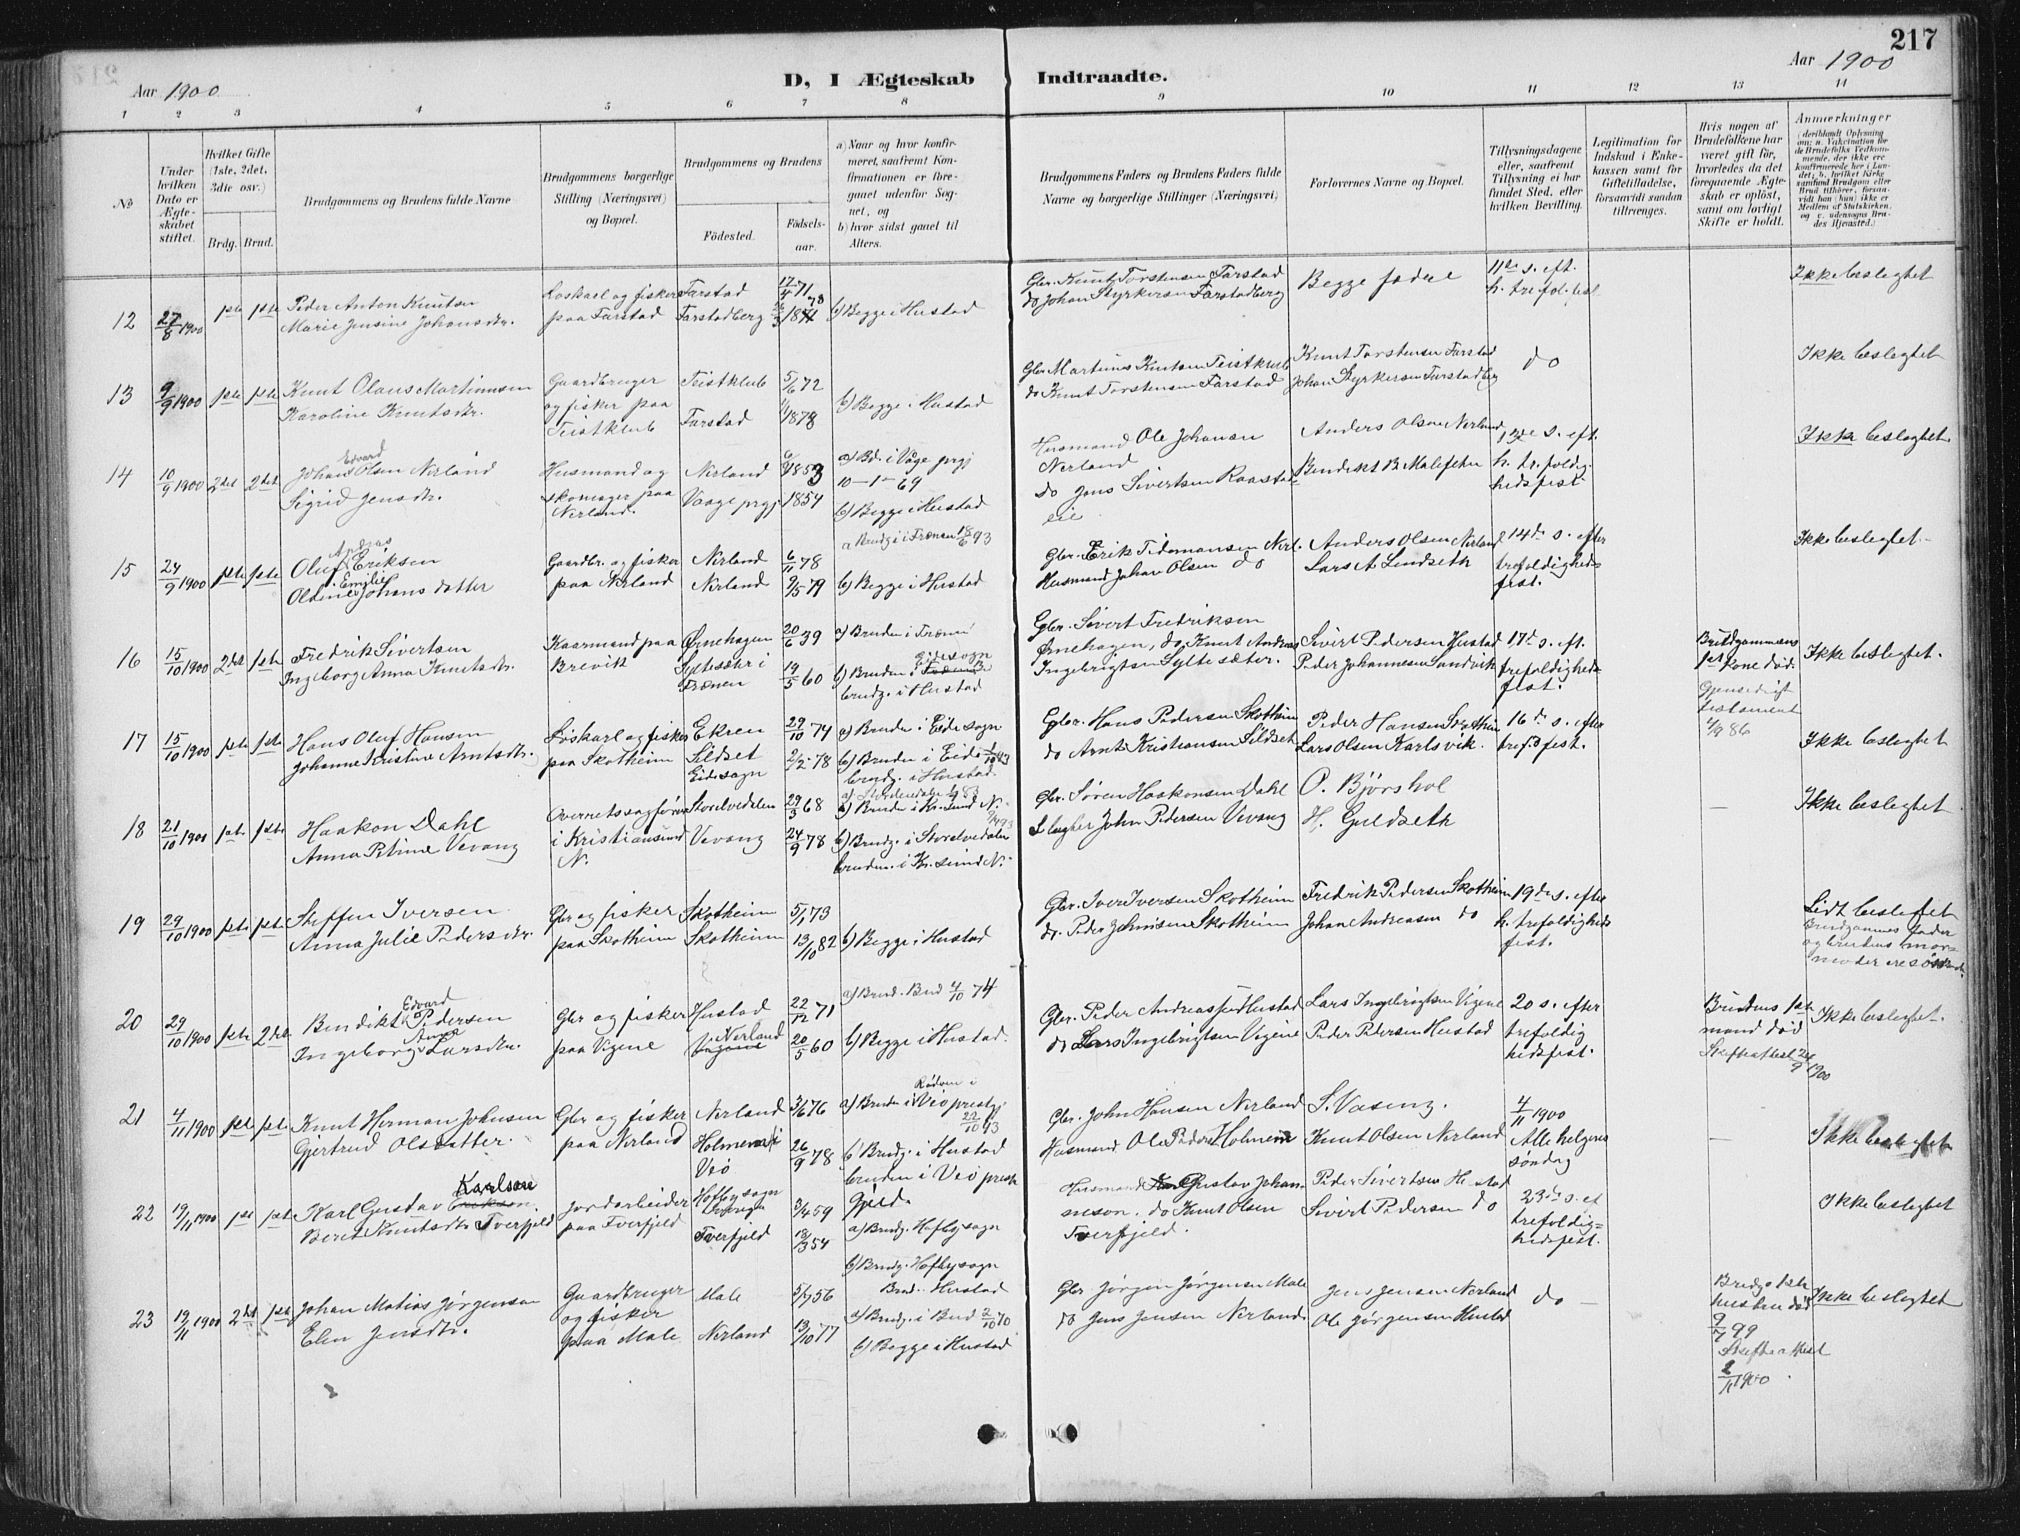 217
Aar 1900
D, I Ægteskab Indtraadte.
Aar 1900
1 2 3 4 5 6 7 8 9 10 11 12 13 14
No
Under hvilken Dato er Ægteskabet stiftet.
Hvilket Gifte (1ste, 2det, 3die osv.)
Brdg. Brud.
Brudgommens og Brudens fulde Navne
Brudgommens borgerlige Stilling (Næringsvei) og Bopæl.
Brudgommens og Brudens
Fødested.
Fødselsaar.
a) Naar og hvor konfirmeret, saafremt Konfirmationen er foregaaet udenfor Sognet, og
b) hvor sidst gaaet til Alters.
Brudgommens Faders og Brudens Faders fulde Navne og borgerlige Stillinger (Næringsvei)
Forlovernes Navne og Bopæl.
Tillysningsdagene eller, saafremt Tillysning ei har fundet Sted, efter hvilken Bevilling.
Legitimation for Indskud i Enkekassen samt for Giftetilladelse, forsaavidt saadan tiltrænges.
Hvis nogen af Brudefolkene har været gift før, hvorledes da det foregaaende Ægteskab er opløst, samt om lovligt Skifte er holdt.
Anmærkninger
12 27/8 1900 1ste 1ste
Peder Anton Knutsen
Marie Jensine Johansdtr.
Løskael og fisker
paa Farstad
Farstad
Farstadberg
b) Begge i Hustad
Gbr. Knut Torstensen Farstad
do Johan Styrkersen Farstadberg
Begge fædre
11te s. eft.
h. trefol. fest
Ikke beslegtet
13 9/9 1900 1ste 1ste
Knut Olaus Martinusen
Karoline Knutsdtr.
Gaardbruger
og fisker paa
Teistklub
Teistklub 5/6 72
Farstad 1878
b) Begge i Hustad
Gbr. Martinus Knutsen Teistklub
do Knut Torstensen Farstad
Knut Torstensen Farstad
Johan Styrkersen Farstadberg
do
Ikke beslegtet
14 10/9 1900 2det 2det
Edvard
Johan Olsen Nerland
Sigrid Jensdtr.
Husmand og
skomager paa
Nerland.
Nerland 1853
Vaage prgj 1854
a) Bd. i Våge prgj
10-1-69
b) Begge i Hustad
Husmand Ole Johansen
Nerland
do Jens Sivertsen Raastad
eie
Anders Olsen Nerland
Bendikt B. Malefeten
13de s. eft.
h. tr. foldighedsfest
Ikke beslegtet
15 24/9 1900 1ste 1ste
Andreas
Oluf Eriksen
Emilie
Oldine Johansdatter
Gaardbr. og fisker
paa Nerland
Nerland 6/11 78
Nerland 9/5 79
a Brudg. i Frænen 18/6 93
b) Begge i Hustad
Gbr. Erik Tidemansen Nerl.
Husmand Johan Olsen do
Anders Olsen Nerland
Lars A Lindseth
14de s. efter
trefoldighedsfest.
Ikke beslegtet
16 15/10 1900 2det 1ste
Fredrik Sivertsen
Ingeborg Anna Knutsdtr.
Kaarmand paa
Brevik
Ørnehagen 20/6 39
Syltesæter i
Frænen 19/5 60
a) Bruden i Frænen
b) Bruden i Eidesogn
brudg. i Hustad
Gbr. Sivert Fredriksen
Ørnehagen, do Knut Andreas
Ingebrigtsen Syltesæter.
Sivert Pedersen Hustad
Peder Johannesen Sandvik
17de s. eft.
trefoldighedsfest.
Brudgommens
1ste kone død
Gjensidigt
testament
4/9 86
Ikke beslegtet.
17 15/10 1900 1ste 1ste
Hans Oluf Hansen
Johanne Kristine Arntsdtr.
Løskarl og fisker
paa Skotheim
Ekren 29/10 74
Sildset
Eidesogn 2/2-78
a) Bruden i Eidesogn
b) Bruden i Eide
brudg. i Hustad
Gbr. Hans Pedersen Skotheim
do Arnt Kristiansen Sildset
Peder Hansen Skotheim
Lars Olsen Karlsvik.
16de s. efter
tref.d fest.
Ikke beslegtet
18 21/10 1900 1ste 1ste
Haakon Dahl
Anna Petrine Vevang
Overretssagfører
i Kristiansund
N.
Storelvedalen 29/3 68
Vevang 24/9 78
a) Storelvedalen 83
a) Bruden i Kr.sund N.
b) Brudg. i Storelvedalen
bruden i Kr. sund N.
Gbr. Søren Haakonsen Dahl
Slagter John Pedersen Vevang
O. Bjørshol
H. Guldseth
Ikke beslegtet
19 29/10 1900 1ste 1ste
Steffen Iversen
Anna Julie Pedersdtr.
Gbr og fisker
paa Skotheim
Skotheim 5/1 73
Skotheim 13/10 82
b) Begge i Hustad
Gbr. Iver Iversen Skotheim
do. Peder Johnsen Skotheim
Fredrik Pedersen Skotheim
Johan Andreasen do
19de s. efter
h. trefoldighedsfest.
Lidt beslegtet
Brudgommens fader
og brudens mormoder ere søsk.
20 29/10 1900 1ste 2det
Edvard
Bendikt Pedersen
Anna
Ingeborg Larsdtr.
Gbr og fisker
paa Vigene
Hustad 22/12 71
Nerland
Vigene 20/5 60
a) Brud. Bud 4/10 74
b) Begge i Hustad.
Gbr. Peder Andreassen Hustad
do Lars Ingebrigtsen Vigene
Lars Ingebrigtsen Vigene
Peder Pedersen Hustad
20 s. efter
trefoldighedsfest.
Brudens 1ste
mand død
Skifteattest 24/9 1900
Ikke beslegtet.
21 4/11 1900 1ste 1ste
Knut Herman Johnsen
Gjertrud Olsdatter.
Gbr og fisker
paa Nerland
Nerland 3/6 76
Holmem i
Veö 26/9 78
Rødven i
a) Bruden i Veö prestgj 22/10 93
b) Brudg. i Hustad
bruden i Veö prestegjeld.
Gbr. John Hansen Nerland
Husmand Ole Peders Holmem
S. Vaseng.
Knut Olsen Nerland
4/11 1900
Alle helgens
søndag
Ikke beslegtet
22 19/11 1900 1ste 1ste
Karlsen
Karl Gustav
Beret Knutsdtr Tverfjeld
Jordarbeider
paa Tverfjeld
Hofbysogn
Sverige 3/4 59
Tverfjeld 54
a) Brudg. Hofbysogn
b) Brudg. Hofbysogn
Brud. Hustad
Husmand Gustav Johanneson. do Knut Olsen
Tverfjeld.
Peder Sivertsen Hustad
Sivert Pedersen do
23de s. ef
trefoldighedsfest.
Ikke beslegtet
23 19/11 1900 2det 1ste
Johan Matias Jørgensen
Elen Jensdtr.
Gaardbruger
og fisker
paa Male
Male 5/7 56
Nerland 13/10 77
a) Brudg. i Bud 2/10 70
b) Begge i Hustad
Gbr Jørgen Jørgensen Male
do Jens Jensen Nerland
Jens Jensen Nerland
Ole Jørgensen Hustad
do
Brudg. 1ste
hustru død
9/7 99
Skifteattest
2/11 1900.
Ikke beslegtet